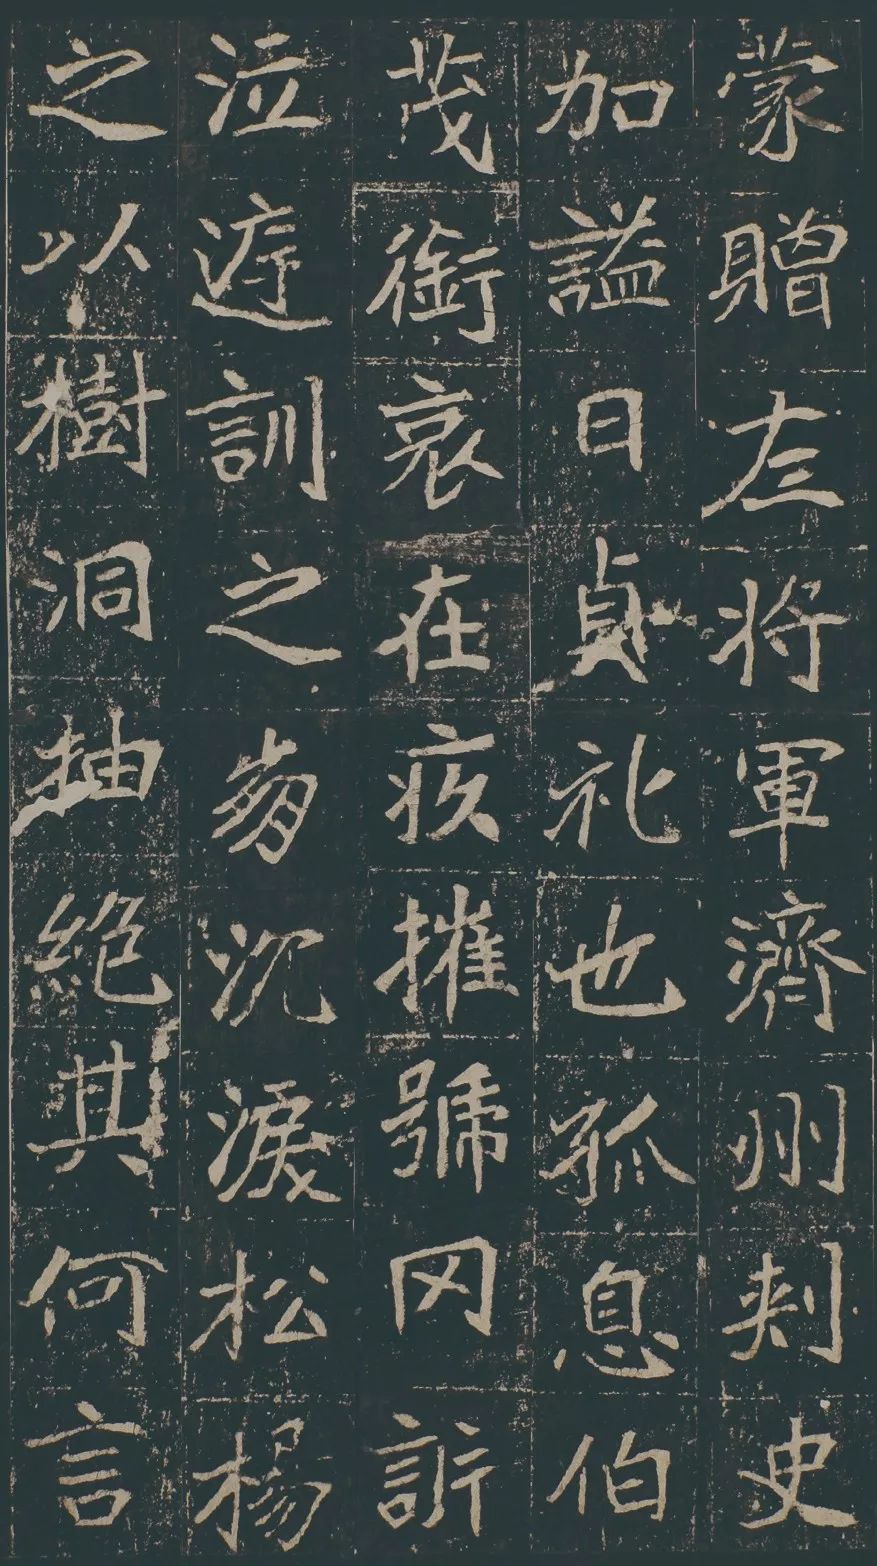 蒙贈左将軍濟州刾史
加謚曰貞礼也孤息伯
茂銜哀在疚摧號罔訴
泣遊訓之崩沉淚松楊
之以樹洞抽絕其何言